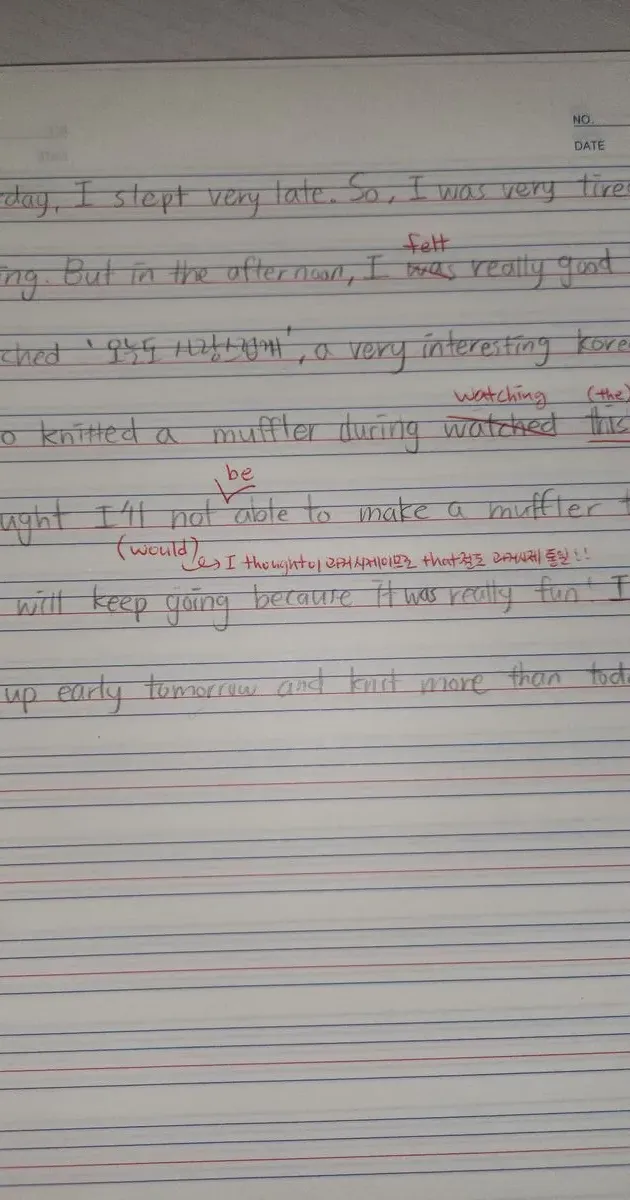 NO.
DATE
day, I slept very late. So, I was very tire
felt
ing. But in the afternoon, I was really good
ched '오늘도 사랑스럽개', a very interesting kore
watching (the)
o knitted a muffler during watched this
be
ught I'll not able to make a muffler t
(would) → I thought이 과거시제이므로 that절도 과거시제 통일!!
will keep going because it was really fun! I
up early tomorrow and knit more than tod